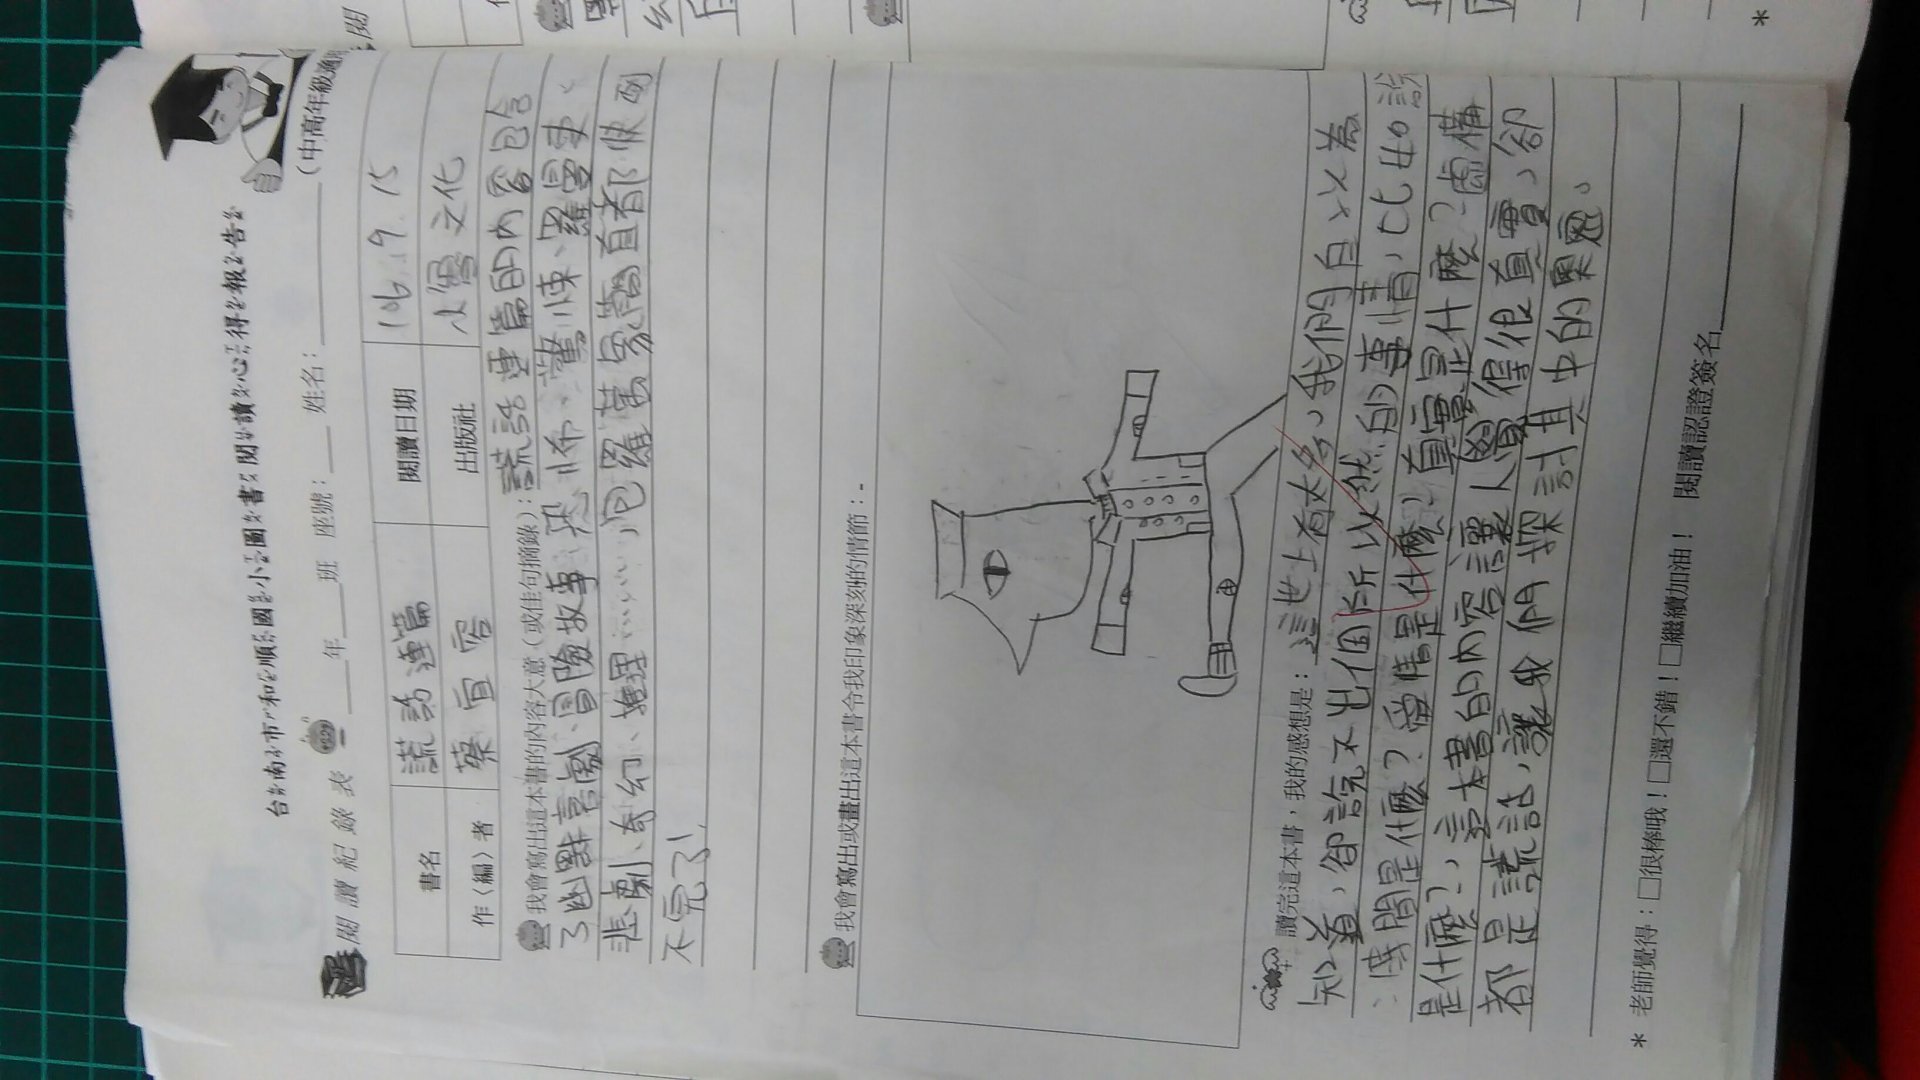 台南市和順國小圖書閱讀心得報告
閱讀紀錄表 ___年___班 座號：___ 姓名：______ (中高年級適
書名 謊話連篇 閱讀日期 106.9.15
作(編)者 蔡宜容 出版社 小魯文化
我會寫出這本書的內容大意(或佳句摘錄)：謊話連篇的內容包含
了幽默喜劇、冒險故事、恐怖、驚悚、羅曼史、
悲劇、奇幻、推理……，包羅萬象簡直都快
不完了!
我會寫出或畫出這本書令我印象深刻的情節：
讀完這本書，我的感想是：這世上有太多，我們自以為
知道，卻說不出個所以然的事情，比如說
：時間是什麼？愛情是什麼？真實是什麼？虛構
是什麼？，這本書的內容讓人覺得很真實，卻
都是謊話，讓我們探討其中的奧秘。
* 老師覺得：□很棒哦！□還不錯！□繼續加油！ 閱讀認證簽名______
*